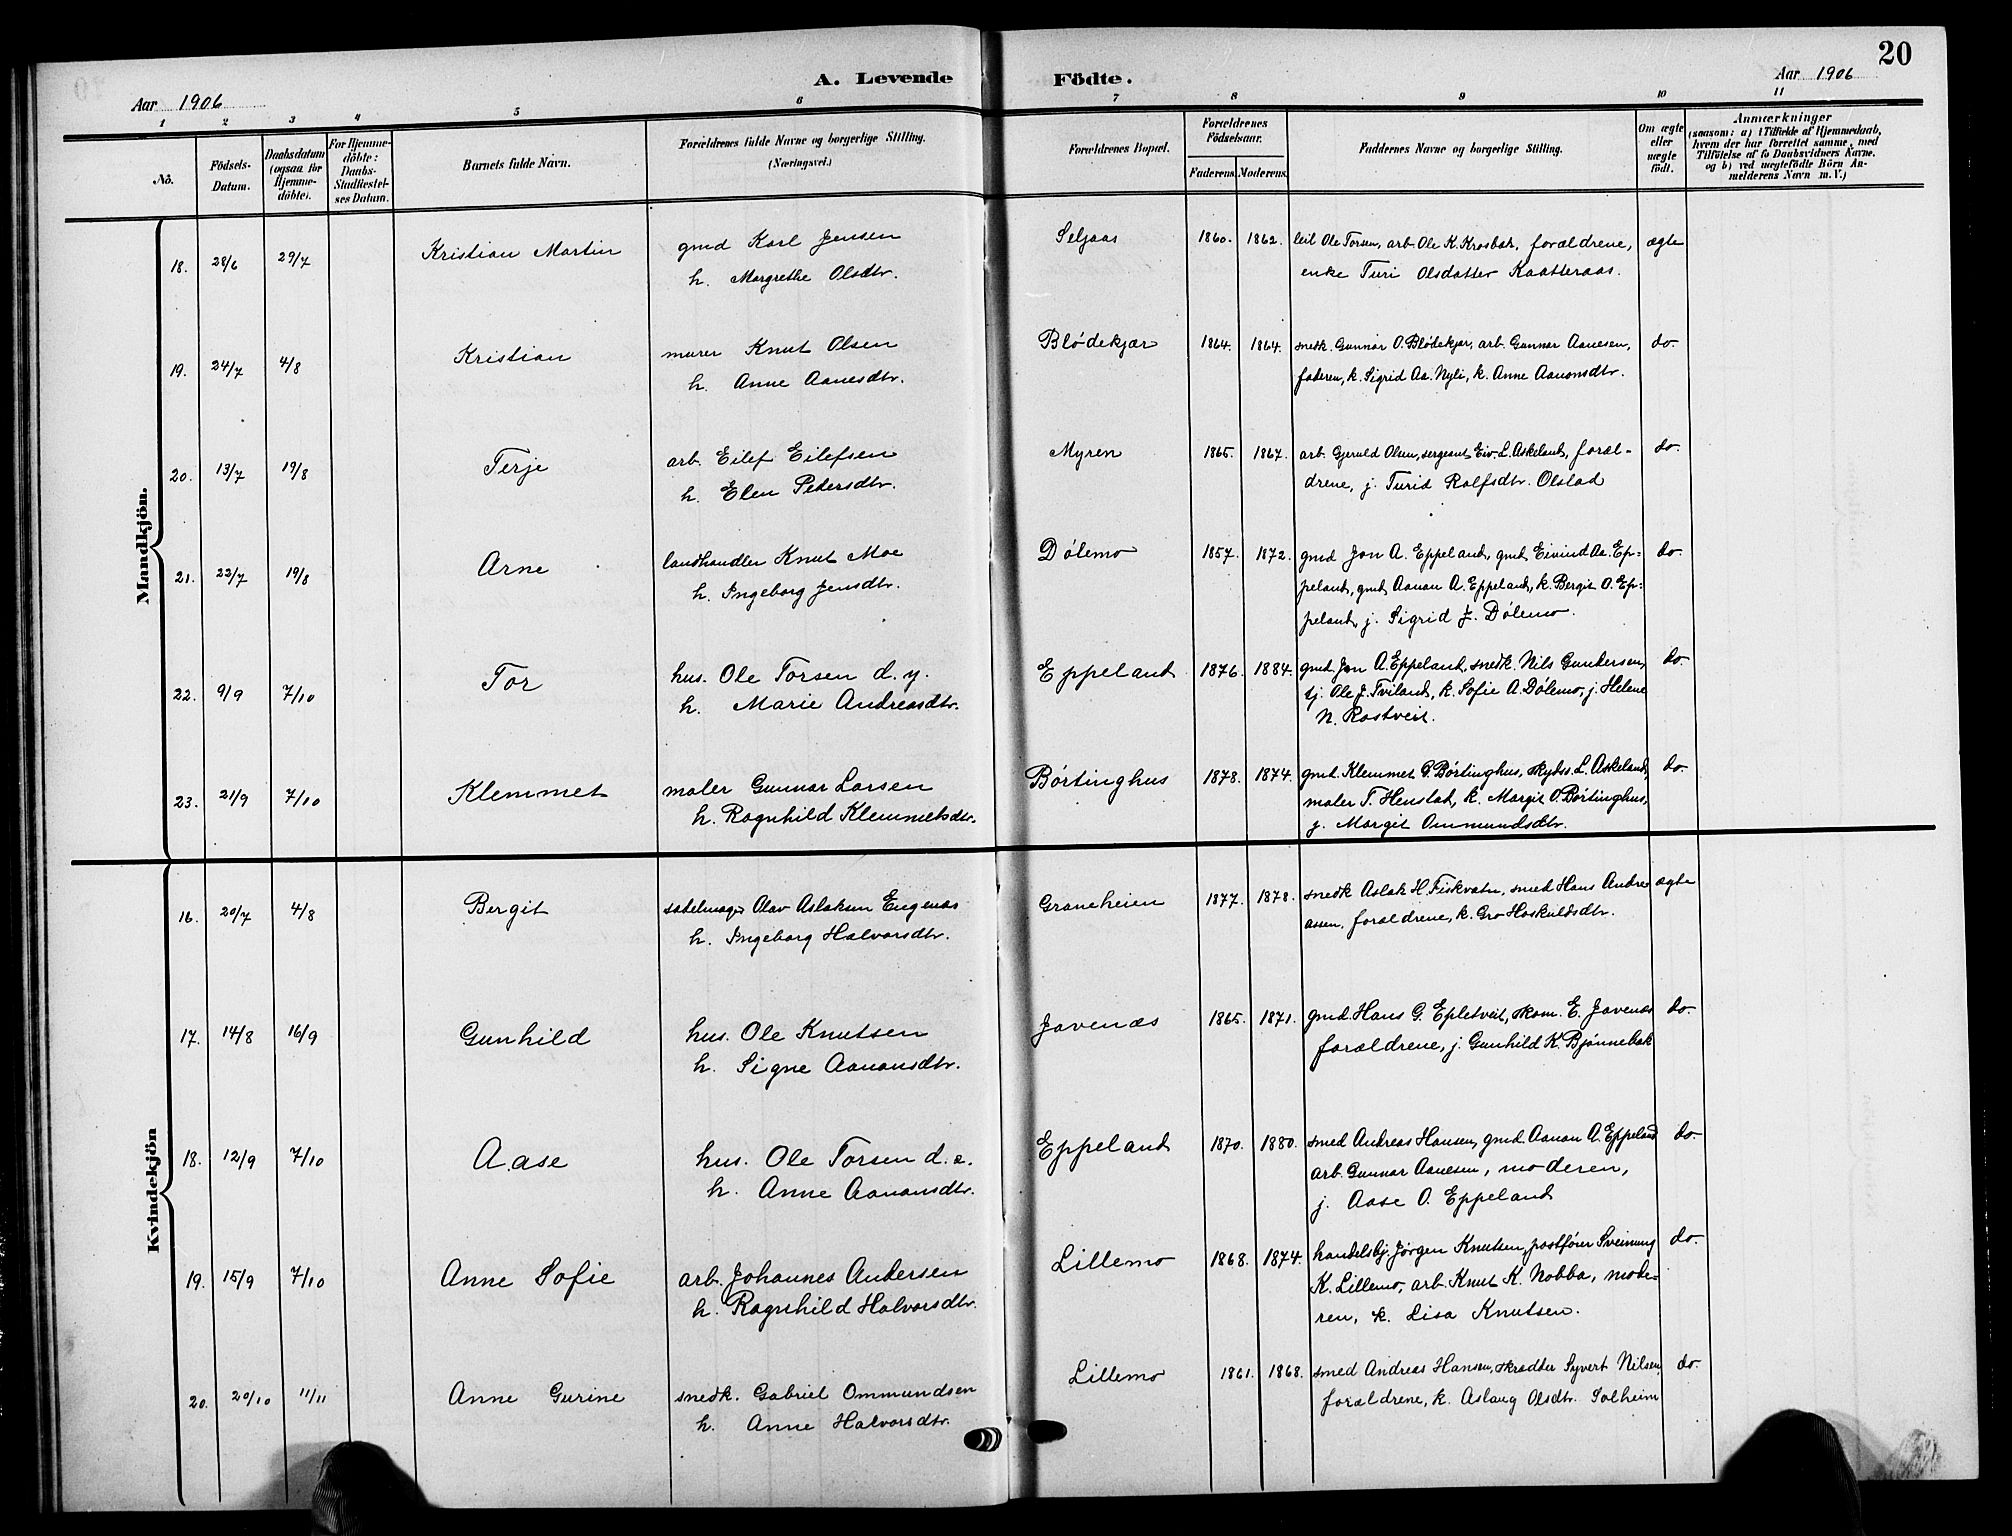 20
A. Levende Födte.
Aar 1906
Aar 1906
1 2 3 4 5 6 7 8 9 10 11
No.
Födsels-Datum.
Daabsdatum (ogsaa for Hjemme-döbte).
For Hjemme-döbte: Daabs-Stadfæstel-ses Datum.
Barnets fulde Navn.
Forældrenes fulde Navne og borgerlige Stilling. (Næringsvei.)
Forældrenes Bopæl.
Forældrenes Födselsaar.
Faderens. Moderens.
Faddernes Navne og borgerlige Stilling.
Om ægte eller uægte födt.
Anmærkninger
(saasom: a) i Tilfælde af Hjemmedaab,
hvem der har forrettet samme, med
Tilföielse af to Daabsvidners Navne.
og b) ved uægtefödte Börn An-
melderens Navn m. V.)
Mandkjön.
18. 28/6 29/7 Kristian Martin gmd Karl Jensen Seljaas 1860. 1862. leil Ole Torsen, arb. Ole K. Krosbak, forældrene, ægte
h. Margrethe Olsdtr. enke Turi Olsdatter Kaatteraas.
19. 24/7 4/8 Kristian murer Knut Olsen Blødekjær 1864. 1864. snedk. Gunnar O. Blødekjær, arb. Gunnar Aanesen, do.
h. Anne Aanesdtr. faderen, k. Sigrid Aa. Nyli, k. Anne Aanonsdtr.
20. 13/7 19/8 Terje arb. Eilef Eilefsen Myren 1865. 1867. arb. Gjeruld Olsen, sergeant Eiv. L. Askeland, foræl- do.
h. Elen Pedersdtr. drene, j. Turid Rolfsdtr. Olstad
21. 22/7 19/8 Arne landhandler Knut Moe Dølemo 1857. 1872. gmd Jon A. Eppeland, gmd Eivind Aa. Ep- do.
h. Ingeborg Jensdtr. peland, gmd Aanon A. Eppeland, k. Bergit O. Ep-
peland, j. Sigrid J. Dølemo.
22. 9/9 7/10 Tor hus. Ole Torsen d. y. Eppeland 1876. 1884. gmd. Jon A. Eppeland, snedk. Nils Gundersen, do.
h. Marie Andreasdtr. tj. Ole J. Tviland, k. Sofie A. Dølemo, j. Helene
N. Rostveit.
23. 21/9 7/10 Klemmet maler Gunnar Larsen Børtinghus 1878. 1874. gmd. Klemmet G. Børtinghus, skydss. L. Askeland, do.
h. Ragnhild Klemmetsdtr. maler T. Henstad, k. Margit O. Børtinghus,
j. Margit Ommundsdtr.
Kvindekjön
16. 20/7 4/8 Bergit sadelmager Olav Aslaksen Engenæs Graneheien 1877. 1878. snedk Aslak H. Fiskvatn, smed Hans Andre- ægte
h. Ingeborg Halvorsdtr. assen, forældrene, k. Gro Hoskuldsdtr.
17. 14/8 16/9 Gunhild hus. Ole Knutsen Javenæs 1865. 1871. gmd. Hans G. Epletveit, skom. E. Javenæs do.
h. Signe Aanonsdtr. forældrene, j. Gunhild K. Bjønnebak
18. 12/9 7/10 Aase hus. Ole Torsen d. e. Eppeland 1870. 1880. smed Andreas Hansen, gmd. Aanon A. Eppeland do.
h. Anne Aanonsdtr. arb. Gunnar Aanesen, moderen,
j. Aase O. Eppeland
19. 15/9 7/10 Anne Sofie arb. Johannes Andersen Lillemo 1868. 1874. handelsbj. Jørgen Knutsen, postfører Sveinung do.
h. Ragnhild Halvorsdtr. K. Lillemo, arb. Knut K. Nobba, mode-
ren, k. Lisa Knutsen.
20. 20/10 11/11 Anne Gurine snedk. Gabriel Ommundsen Lillemo 1861. 1868. smed Andreas Hansen, skrædder Syvert Nilsen, do.
h. Anne Halvorsdtr. forældrene, k. Aslaug Olsdtr. Solheim